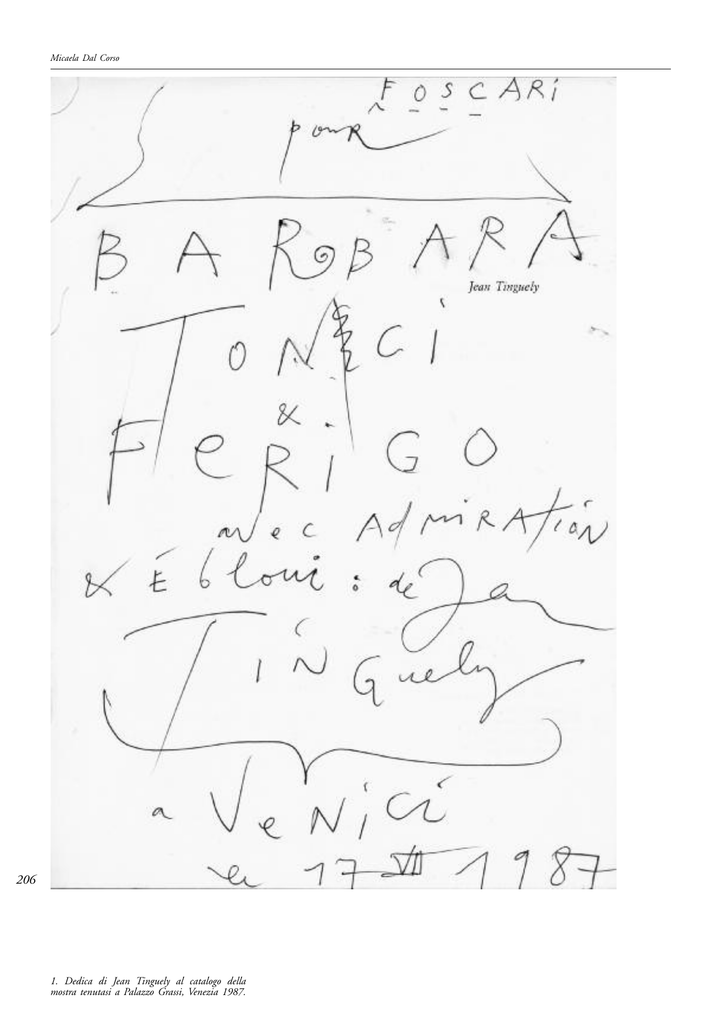 Micaela Dal Corso
FOSCARi
pour
BARBARA
Jean Tinguely
TONiCi
&
FeRiGO
avec AdmiRAtiON
& Ébloui : de Jean
TiNGuely
a VeNiCi
le 17 VII 1987
206
1. Dedica di Jean Tinguely al catalogo della
mostra tenutasi a Palazzo Grassi, Venezia 1987.